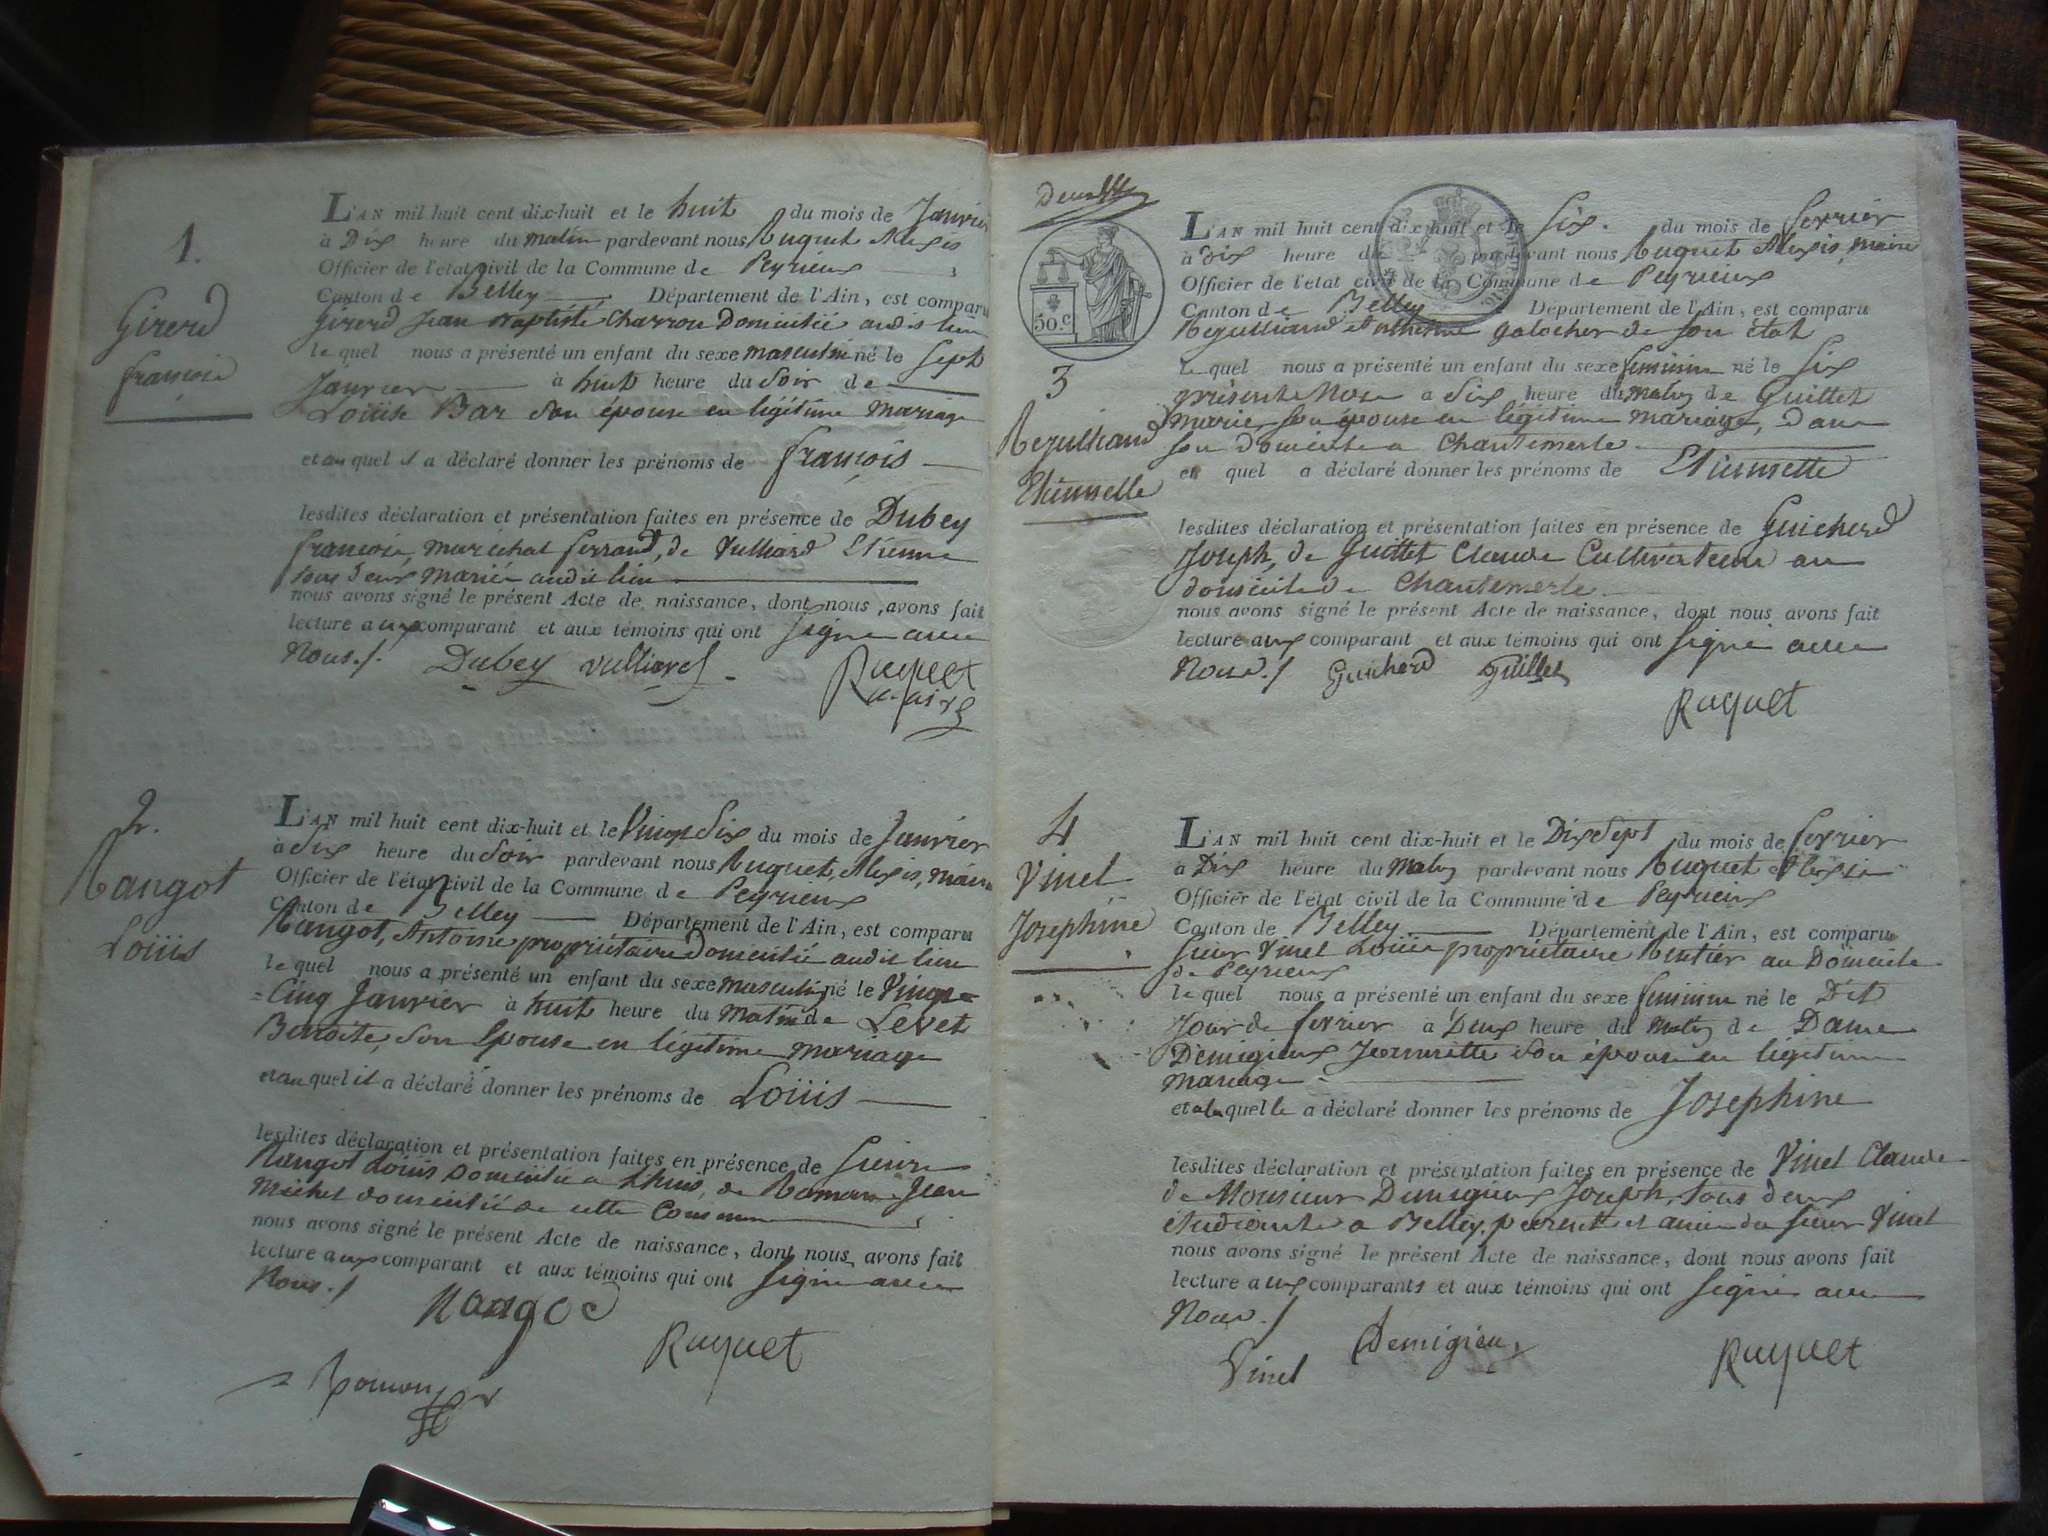 1.
Girerd
françois
L'AN mil huit cent dix-huit et le huit du mois de Janvier
à Dix heure du matin pardevant nous Ruguet Alexis
Officier de l'état civil de la Commune de Peyrieux
Canton de Belley Département de l'Ain, est comparu
Girerd Jean Baptiste Charron Domicilié audit lieu
lequel nous a présenté un enfant du sexe masculin né le Sept
Janvier à huit heure du Soir de
Loüise Bar son épouse en légitime mariage
et auquel il a déclaré donner les prénoms de françois
lesdites déclaration et présentation faites en présence de Dubey
françois, maréchal ferrand, de Vulliard Etienne
tous deux mariés audit lieu
nous avons signé le présent Acte de naissance, dont nous avons fait
lecture aux comparant et aux témoins qui ont signé avec
Nous./. Dubey vulliard Ruguet
maire
2.
Rangot
Loüis
L'AN mil huit cent dix-huit et le Vingt Six du mois de Janvier
à Six heure du Soir pardevant nous Ruguet, Alexis, maire
Officier de l'état civil de la Commune de Peyrieux
Canton de Belley Département de l'Ain, est comparu
Rangot, Antoine propriétaire Domicilié audit lieu
lequel nous a présenté un enfant du sexe masculin né le Vingt=
=Cinq Janvier à huit heure du Matin de Levet
Benoite, son Epouse en légitime mariage
et auquel il a déclaré donner les prénoms de Loüis
lesdites déclaration et présentation faites en présence de Sieur
Rangot Loüis Domicilié a Lhuis, de Roman Jean
Michel domicilié de cette Commune
nous avons signé le présent Acte de naissance, dont nous avons fait
lecture aux comparant et aux témoins qui ont signé avec
Nous./ Rangot
Ruguet
Roman
50.c
3
Rezulliand
Etiennette
L'AN mil huit cent dix-huit et le Six. du mois de fevrier
à dix heure du pardevant nous Ruguet Alexis, maire
Officier de l'état civil de la Commune de Peyrieux
Canton de Belley Département de l'Ain, est comparu
Rezulliand Anthelme galocher de son état
lequel nous a présenté un enfant du sexe feminin né le Six
présent Mois a Six heure du matin de Guillet
marie, son épouse en légitime mariage, dans
son domicile a Chantemerle
et quel a déclaré donner les prénoms de Etiennette
lesdites déclaration et présentation faites en présence de Guicherd
Joseph, de Guillet Claude Cultivateur au
domicile de Chantemerle
nous avons signé le présent Acte de naissance, dont nous avons fait
lecture aux comparant et aux témoins qui ont signé avec
Nous./ Guicherd Guillet
Ruguet
4
Vinet
Josephine
L'AN mil huit cent dix-huit et le Dix Sept du mois de fevrier
à Dix heure du Matin pardevant nous Ruguet Alexis
Officier de l'état civil de la Commune de Peyrieux
Canton de Belley Département de l'Ain, est comparu
Sieur Vinet Loüis propriétaire Rentier au Domicile
de Peyrieux
lequel nous a présenté un enfant du sexe feminin né le Dit
Jour de fevrier à Deux heure du Matin de Dame
Demigieux Jeannette son épouse en légitime
mariage
et a laquelle a déclaré donner les prénoms de Josephine
lesdites déclaration et présentation faites en présence de Vinet Claude
de Monsieur Demigieux Joseph, tous deux
étudiants a Belley, parents et amis du sieur Vinet
nous avons signé le présent Acte de naissance, dont nous avons fait
lecture aux comparants et aux témoins qui ont signé avec
Nous./
Vinet Demigieux Ruguet